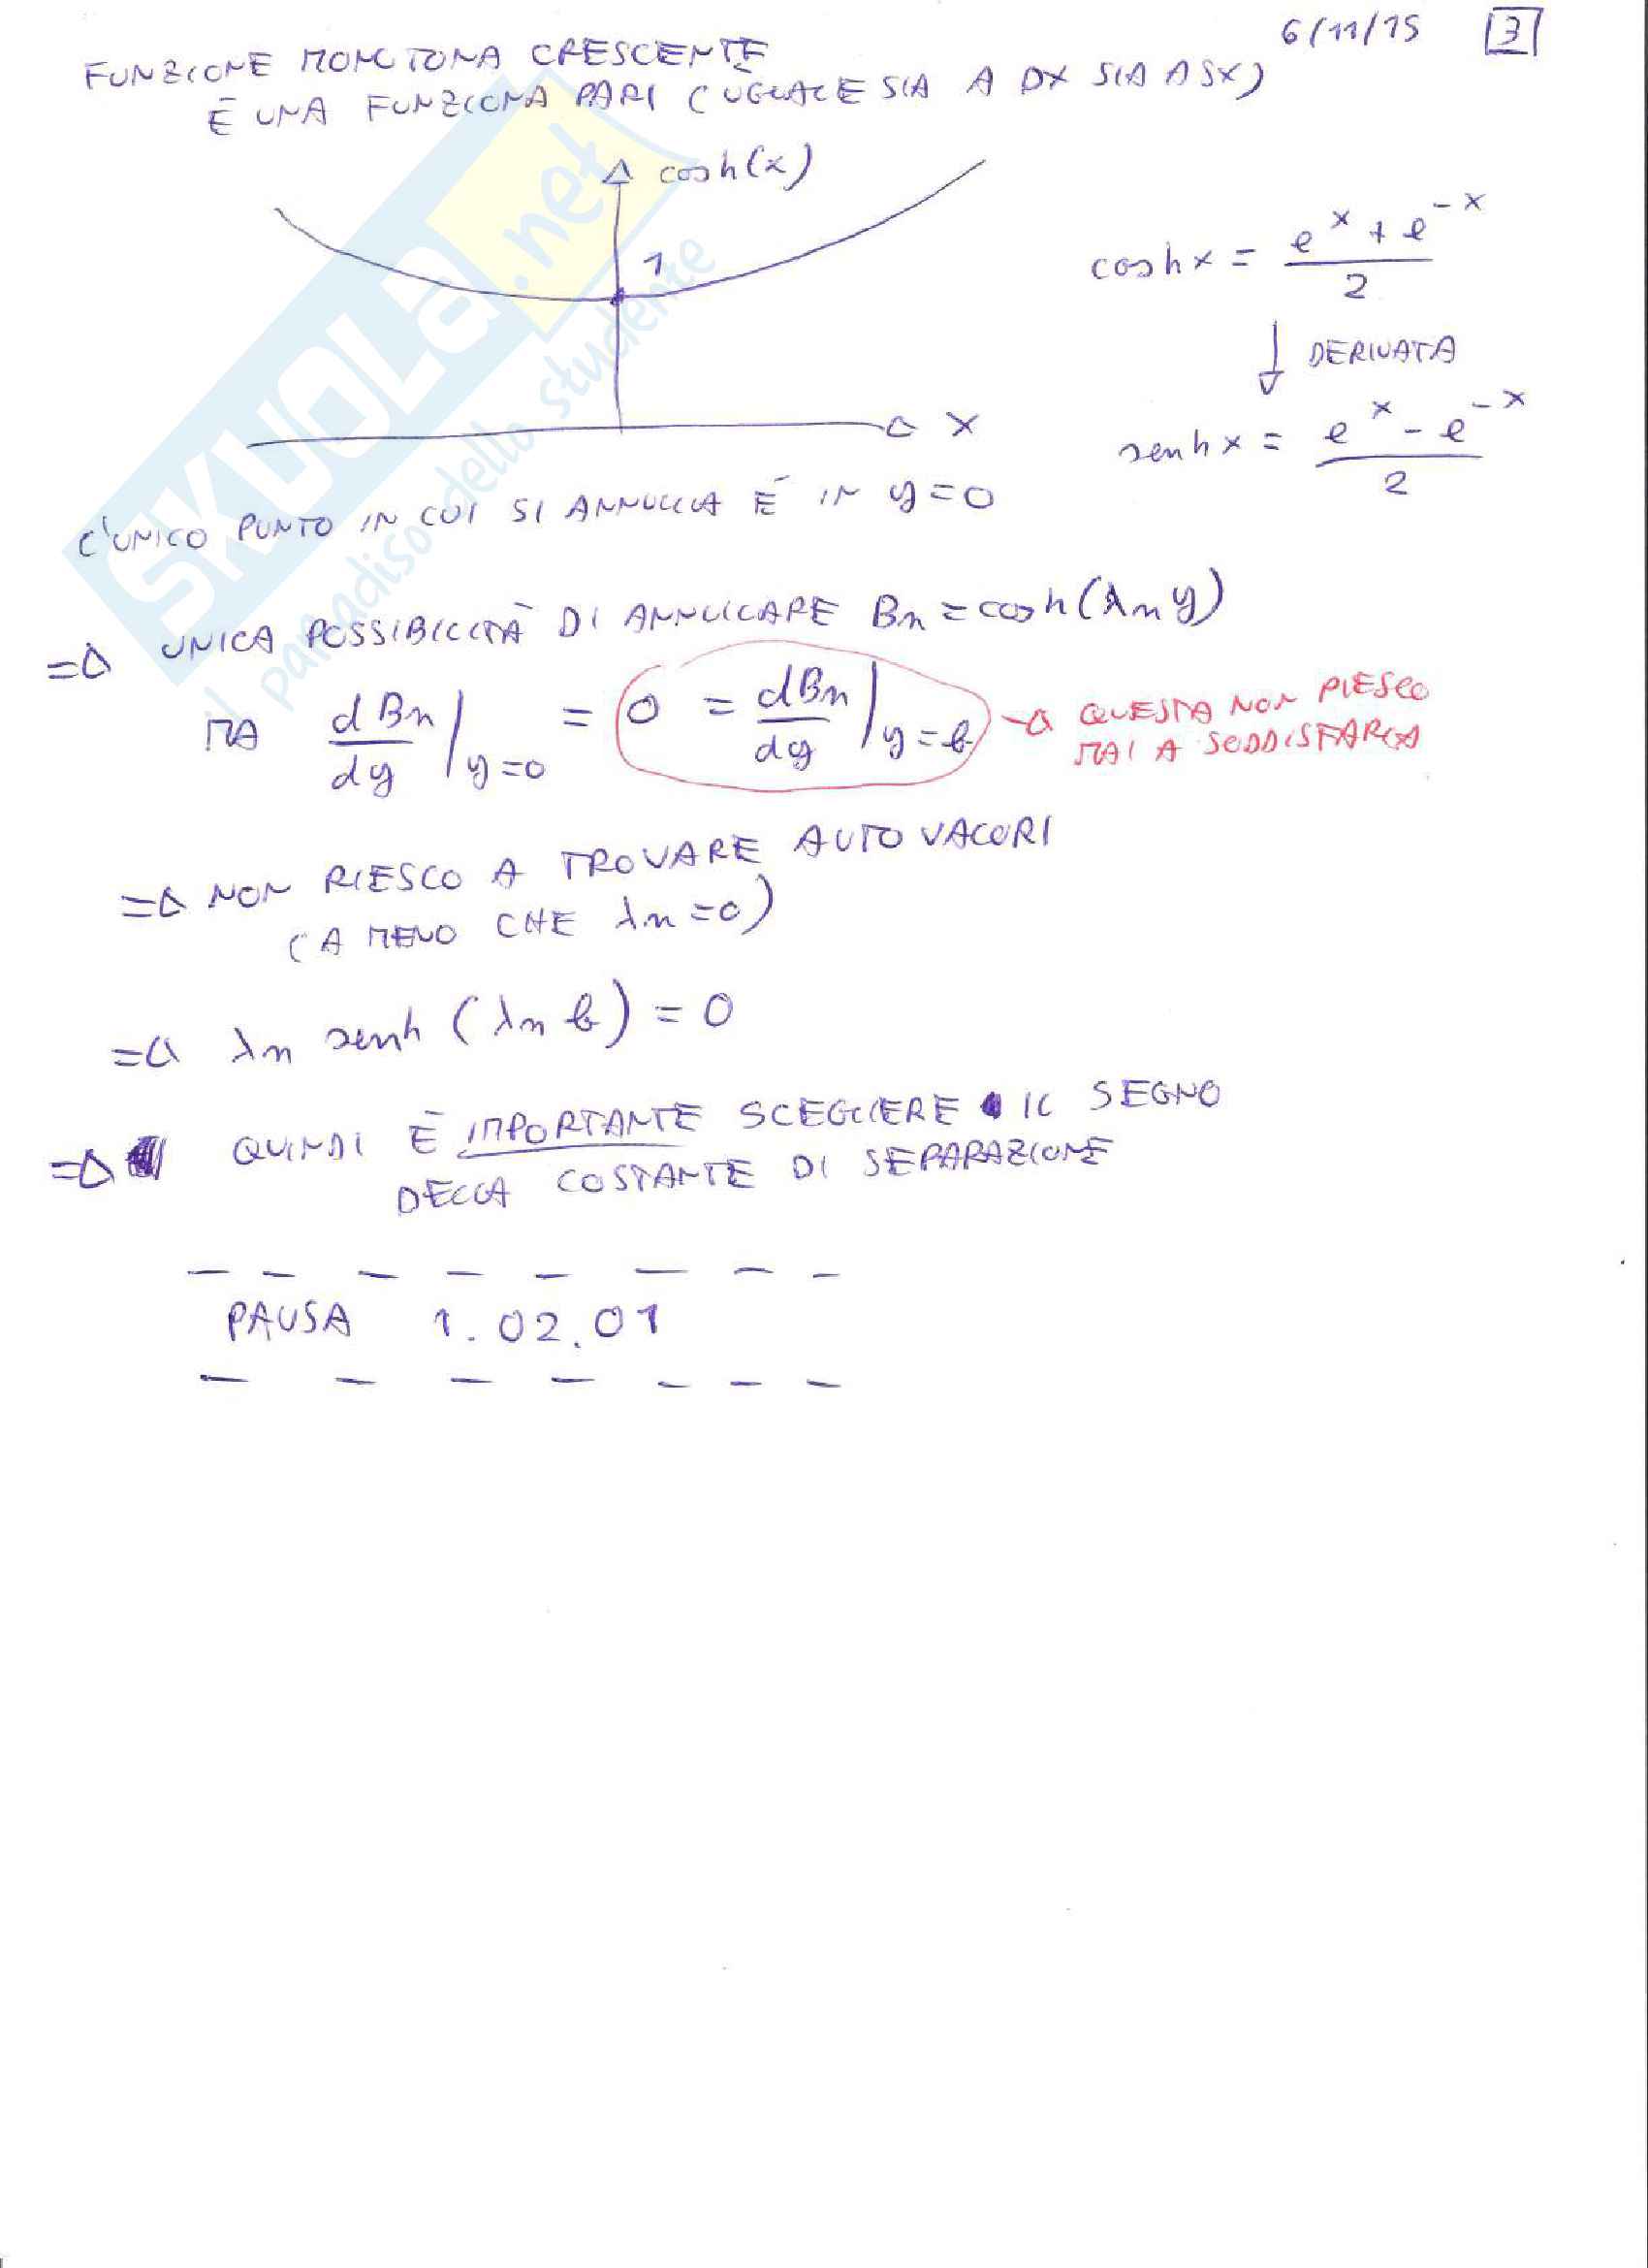 6/11/15 3
FUNZIONE MONOTONA CRESCENTE
È UNA FUNZIONA PARI (UGUALE SIA A DX SIA A SX)
cosh(x)
1
x
cosh x = (e^x + e^-x)/2
↓ DERIVATA
senh x = (e^x - e^-x)/2
L'UNICO PUNTO IN CUI SI ANNULLA È IN y=0
=> UNICA POSSIBILITÀ DI ANNULLARE Bn = cosh(λn y)
MA dBn/dy |y=0 = 0 = dBn/dy |y=b → QUESTA NON RIESCO
MAI A SODDISFARLA
=> NON RIESCO A TROVARE AUTOVALORI
(A MENO CHE λn=0)
=> λn senh (λn b) = 0
=> QUINDI È IMPORTANTE SCEGLIERE IL SEGNO
DELLA COSTANTE DI SEPARAZIONE
PAUSA 1.02.01
SKUOLA.net
il paradiso dello studente